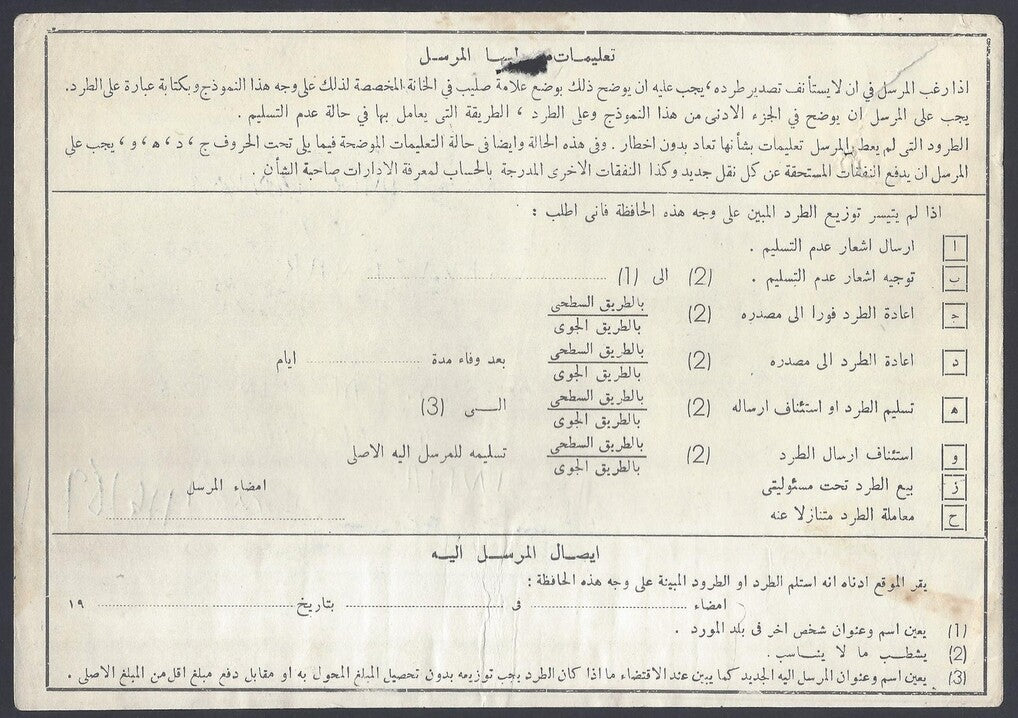 تعليمات المرسل
اذا رغب المرسل في ان لا يستأنف تصدير طرده ، يجب عليه ان يوضح ذلك بوضع علامة صليب في الخانة المخصصة لذلك على وجه هذا النموذج وبكتابة عبارة على الطرد .
يجب على المرسل ان يوضح في الجزء الادنى من هذا النموذج وعلى الطرد ، الطريقة التى يعامل بها في حالة عدم التسليم .
الطرود التى لم يعط المرسل تعليمات بشأنها تعاد بدون اخطار . وفي هذه الحالة وايضا فى حالة التعليمات الموضحة فيما يلى تحت الحروف ج ، د ، ه ، و ، يجب على
المرسل ان يدفع النفقات المستحقة عن كل نقل جديد وكذا النفقات الاخرى المدرجة بالحساب لمعرفة الادارات صاحبة الشأن .
اذا لم يتيسر توزيع الطرد المبين على وجه هذه الحافظة فانى اطلب :
ا ارسال اشعار عدم التسليم .
ب توجيه اشعار عدم التسليم . (2) الى (1)
ج اعادة الطرد فورا الى مصدره (2) بالطريق السطحى
بالطريق الجوى
د اعادة الطرد الى مصدره (2) بالطريق السطحى بعد وفاء مدة ايام
بالطريق الجوى
ه تسليم الطرد او استئناف ارساله (2) بالطريق السطحى الــى (3)
بالطريق الجوى
و استئناف ارسال الطرد (2) بالطريق السطحى تسليمه للمرسل اليه الاصلى
بالطريق الجوى
ز بيع الطرد تحت مسئوليتى
امضاء المرسل
ح معاملة الطرد متنازلا عنه
ايصــال المرســل اليــه
يقر الموقع ادناه انه استلم الطرد او الطرود المبينة على وجه هذه الحافظة :
امضاء فى بتاريخ ١٩
(1) يعين اسم وعنوان شخص اخر فى بلد المورد .
(2) يشطب ما لا يناسب .
(3) يعين اسم وعنوان المرسل اليه الجديد كما يبين عند الاقتضاء ما اذا كان الطرد يجب توزيعه بدون تحصيل المبلغ المحول به او مقابل دفع مبلغ اقل من المبلغ الاصلى .